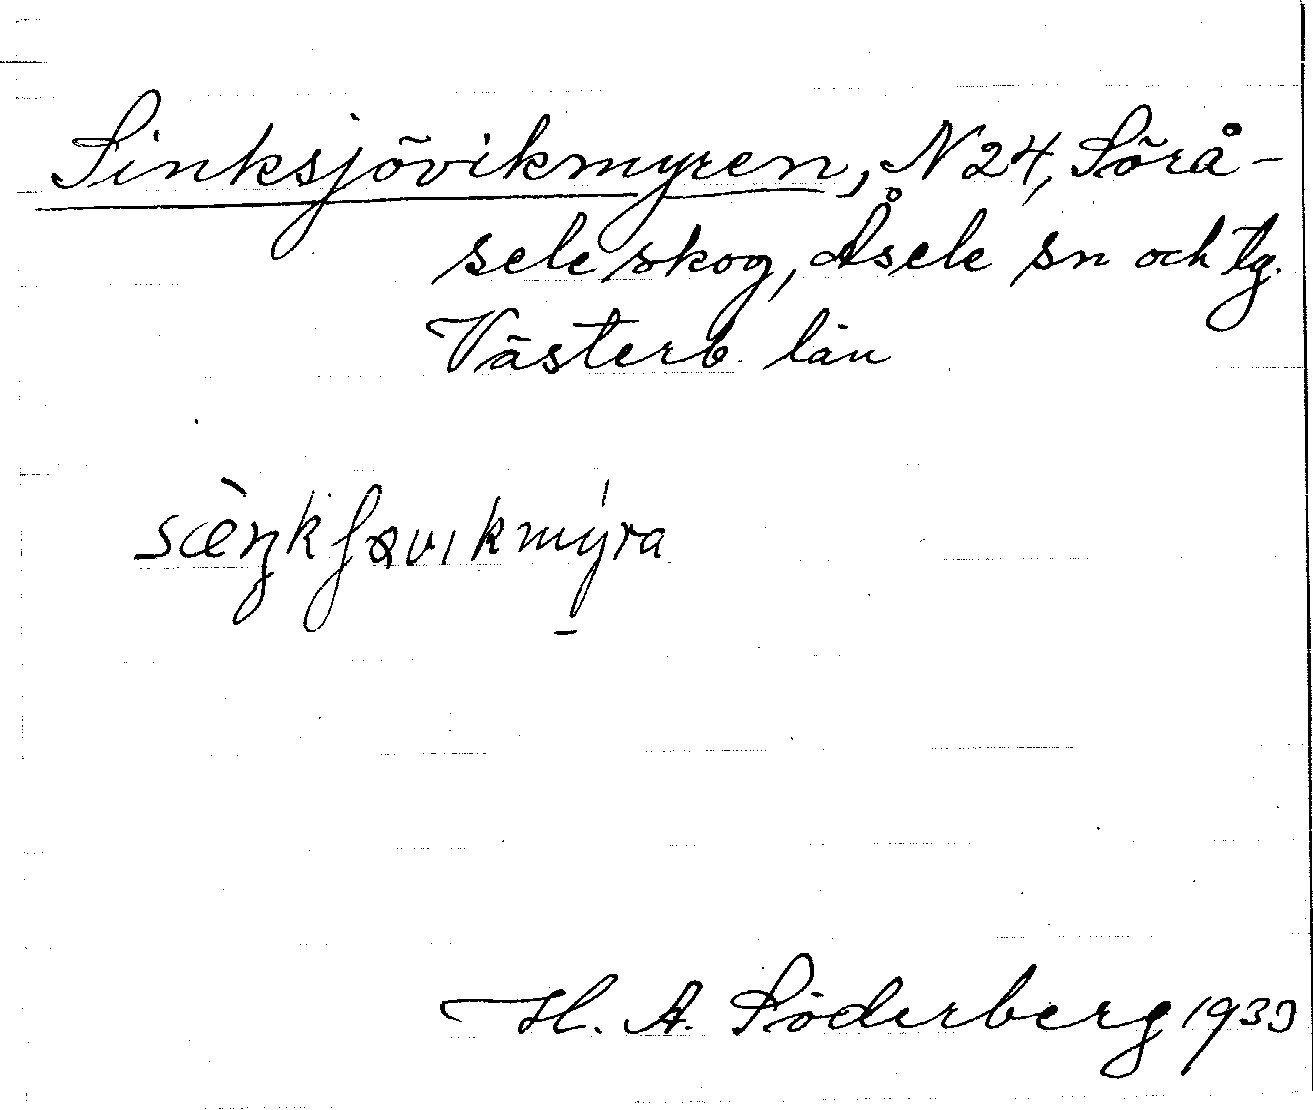 Sinksjövikmyren, N 24, Sörå-
sele skog, Åsele sn och tg.
Västerb. län
H. A. Söderberg 1930